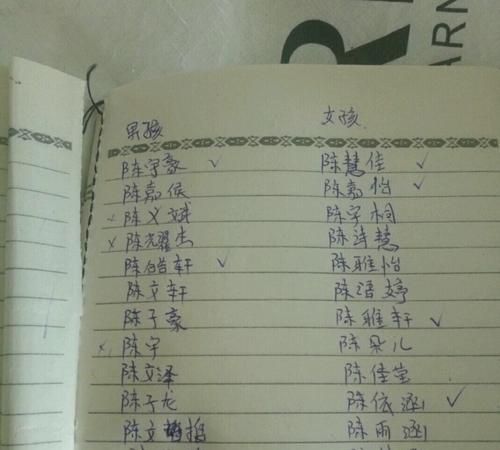 R
ARN
男孩 女孩
陈宇豪 ✓ 陈慧佳 ✓
陈嘉俊 陈嘉怡 ✓
x 陈义斌 陈宇桐
x 陈耀杰 陈诗慧
陈皓轩 ✓ 陈雅怡
陈文轩 陈语婷
陈子豪 陈雅轩 ✓
x 陈宇 陈朵儿
陈文泽 陈佳莹
陈子龙 陈依涵 ✓
陈文 陈雨涵